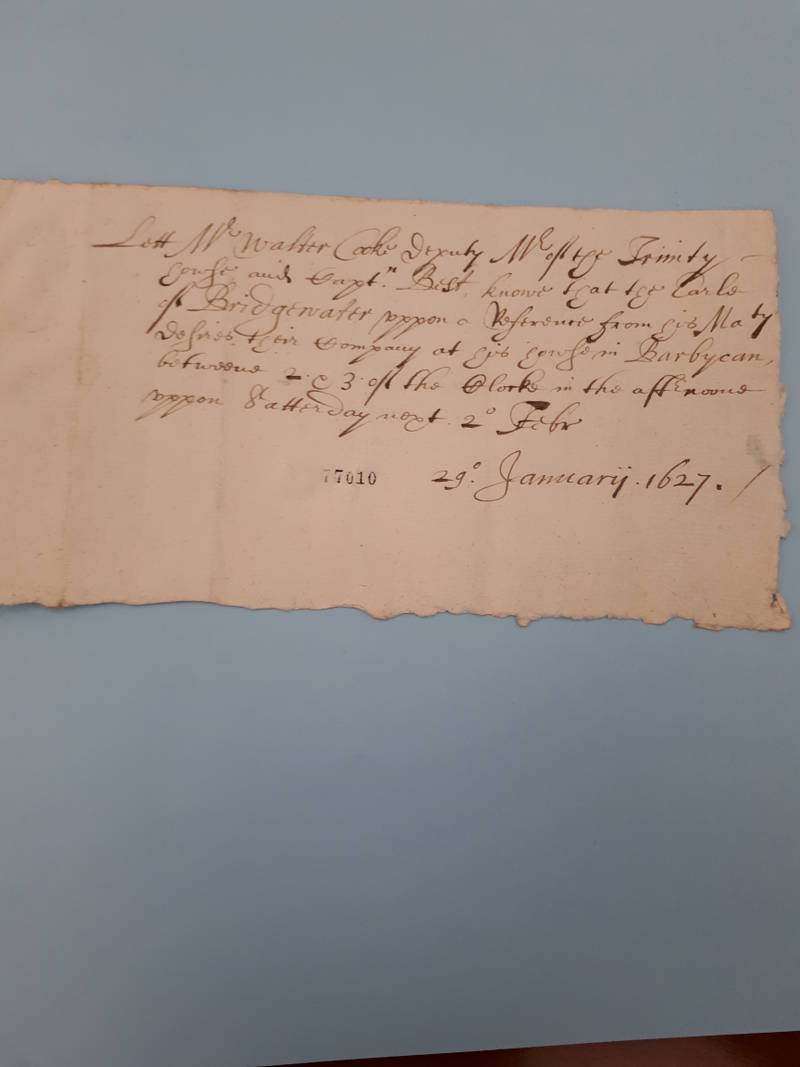 Lett Mr Walter Cooke Deputy Mr of the Trinity
howse and Capt.n Best, knowe that the Earle
of Bridgewater vppon a Reference from his Maty
desires their Company at his howse in Barbycan,
betweene 2 & 3 of the Clocke in the afternoone
vppon Satterday next 2o Febr
77010 29o. Januarij. 1627. /